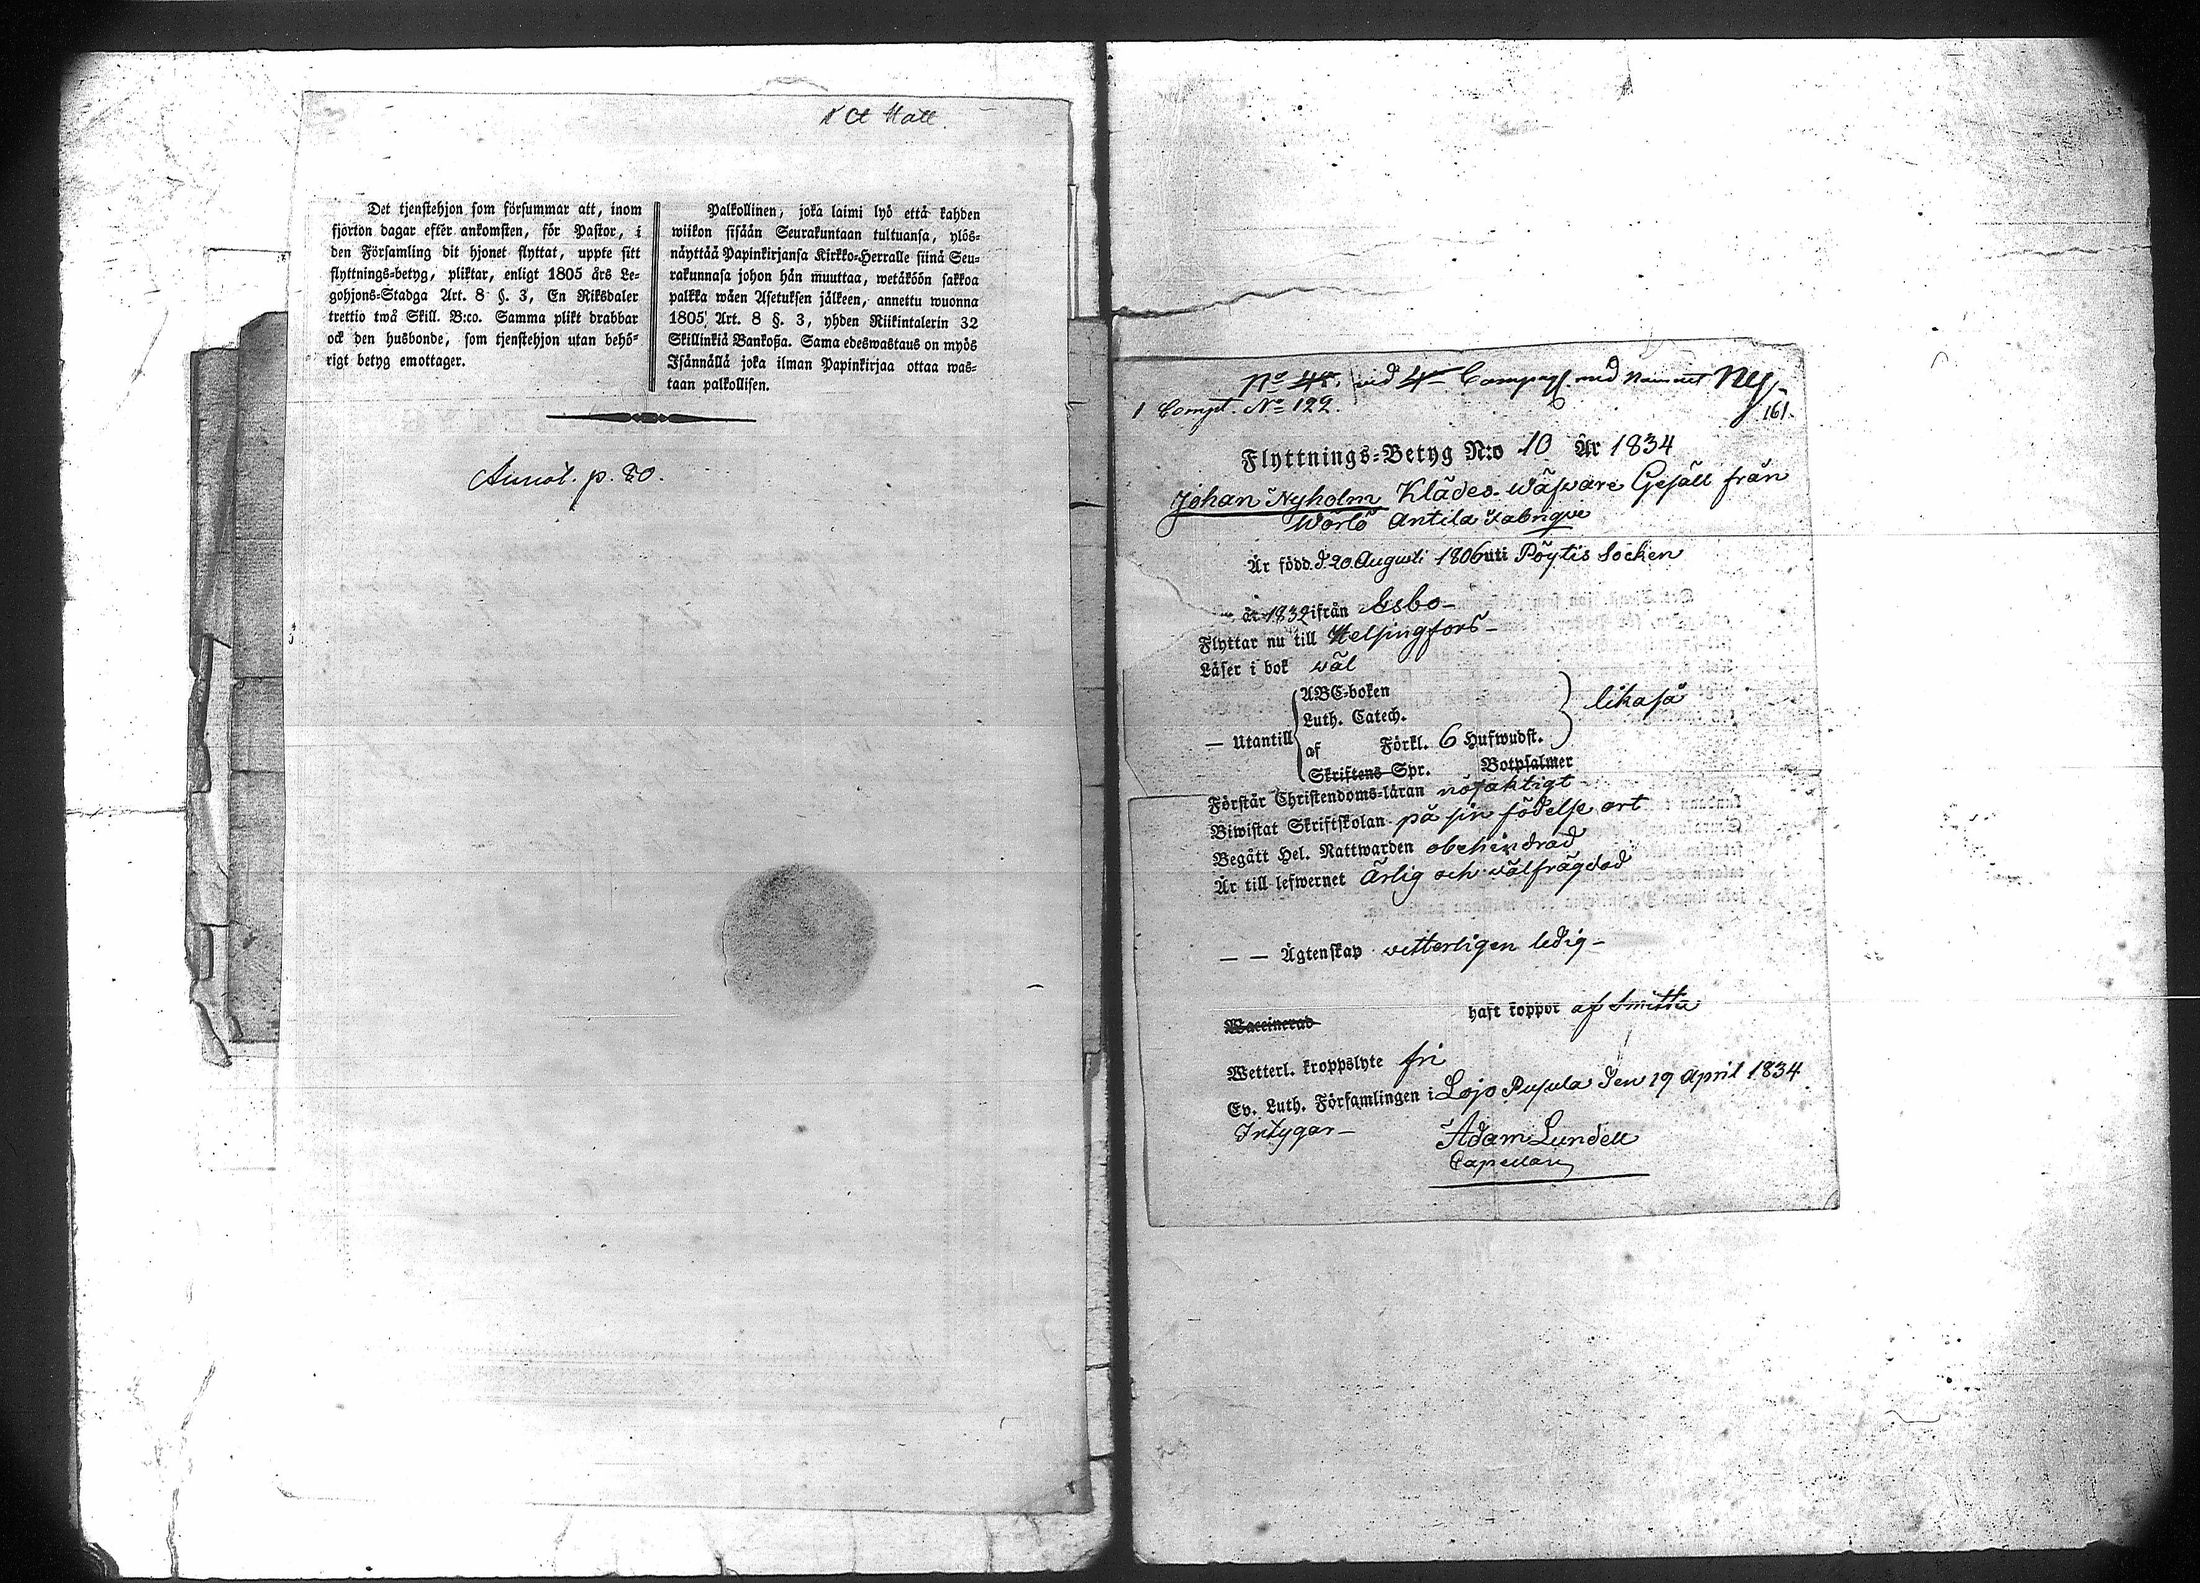 Det tjenstehjon som försummar att, inom
fjorton dagar efter ankomsten, för Pastor, i
den Församling dit hjonet flyttat, uppte sitt
flyttnings-betyg, pliktar, enligt 1805 års Le-
gohjons-Stadga Art. 8 §. 3, En Riksdaler
trettio twå Skill. B:co. Samma plikt drabbar
ock den husbonde, som tjenstehjon utan behö-
rigt betyg emottager.
Palkollinen, joka laimi lyö että kahden
wiikon sisään Seurakuntaan tultuansa, ylös-
näyttää Papinkirjansa Kirkko-Herralle siinä Seu-
rakunnasa johon hän muuttaa, wetäköön sakkoa
palkka wäen Asetuksen jälkeen, annettu wuonna
1805 Art. 8 §. 3, yhden Riikintalerin 32
Skillinkiä Bankoßa. Sama edeswastaus on myös
Isännällä joka ilman Papinkirjaa ottaa was-
taan palkollisen.
Annot. p. 80.
No 48. wid 4de Compagt med namnet Ny
1 Compt. No 122.
161.
Flyttnings-Betyg N:o 10 År 1834
Johan Nyholm Klädes wäfware Gesäll från
Antila Fabrique
Är född d 20 Augusti 1806 uti Pöytis Socken
år 1832 ifrån Esbo
Flyttar nu till Helsingfors
Läser i bok wäl
— Utantill
ABC-boken
Luth. Catech.
af Förkl. 6 Hufwudst.
Skriftens Spr. Botpsalmer
likaså
Förstår Christendoms-läran nöjaktigt
Biwistat Skriftskolan på sin födelse ort
Begått Hel. Nattwarden obehindrad
Är till lefwernet Ärlig och wälfrägdad
— — Ägtenskap vetterligen ledig
Waccinerad haft koppor af Smitta
Wetterl. kroppslyte fri
Ev. Luth. Församlingen i Lojo Pusula den 19 April 1834
Intygar
Adam Lundell
Capellan